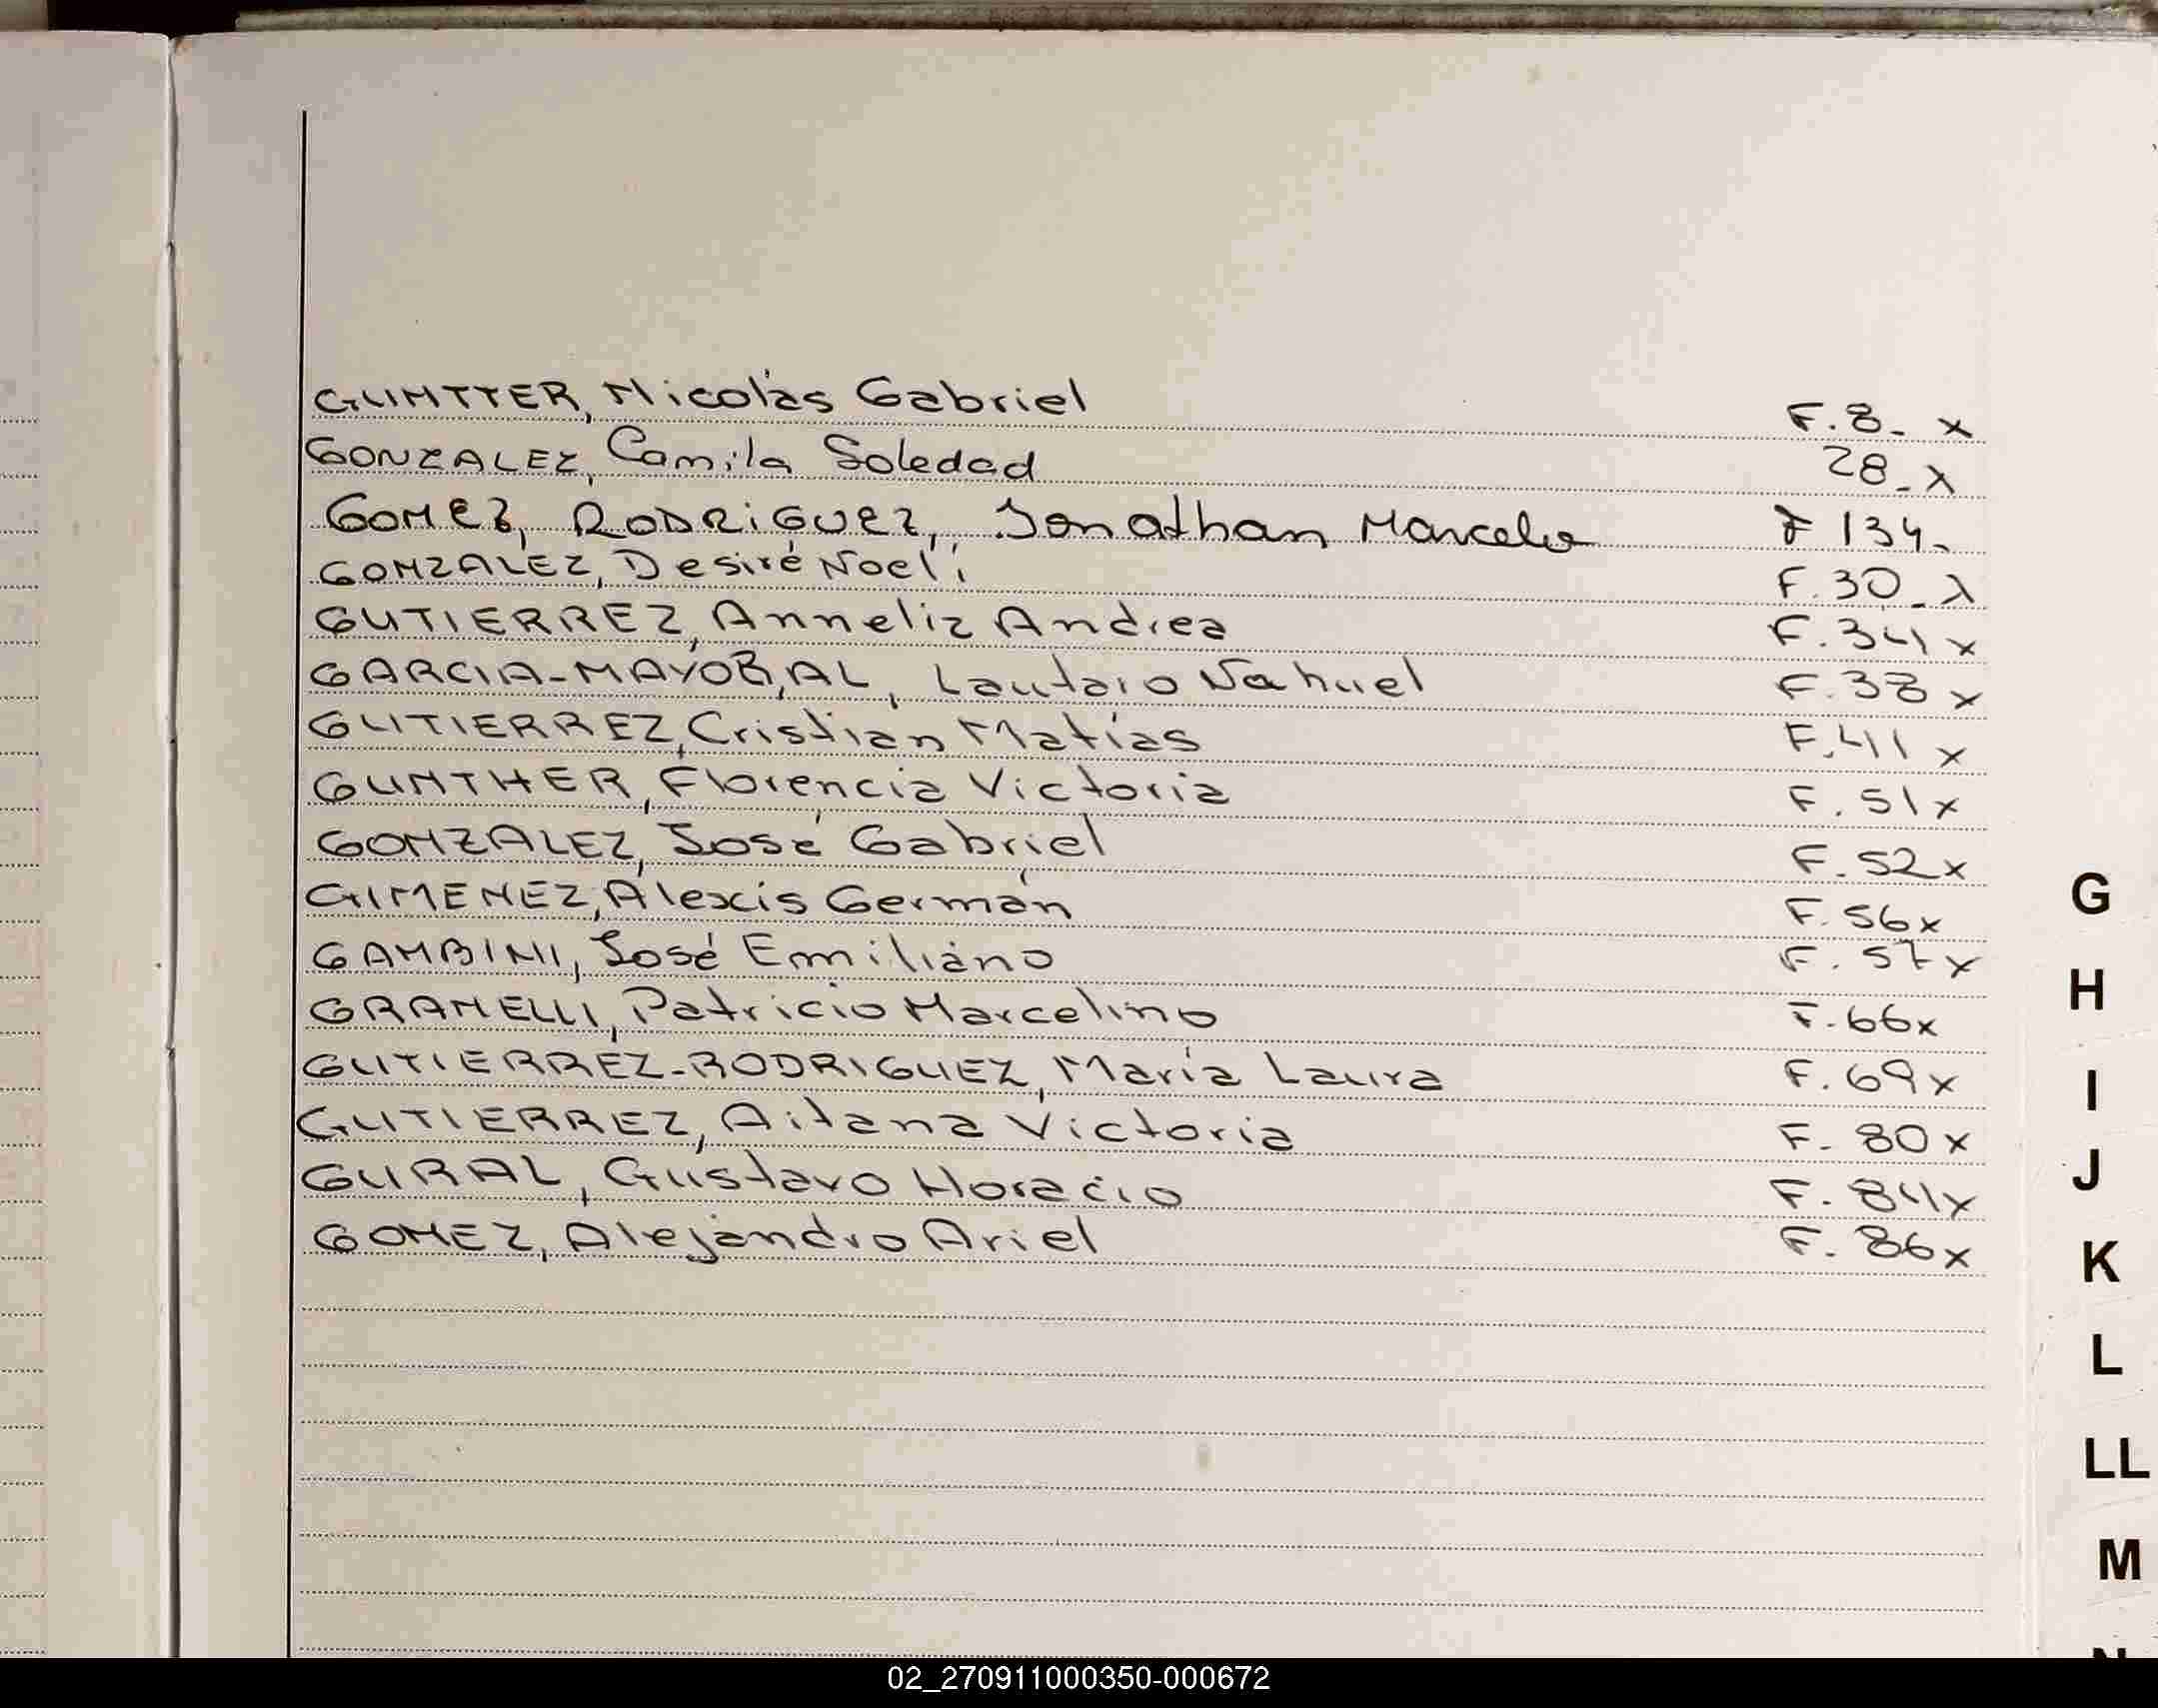 GUNTTER, Nicolás Gabriel F.8- x
GONZALEZ, Camila Soledad 28-x
GOMEZ, RODRIGUEZ, Jonathan Marcelo F 134-
GONZALEZ, Desiré Noelí F.30-x
GUTIERREZ, Anneliz Andrea F.34 x
GARCIA-MAYORAL, Lautaro Nahuel F.38 x
GUTIERREZ, Cristian Matías F.41 x
GUNTHER, Florencia Victoria F.51x
GONZALEZ, José Gabriel F.52x
GIMENEZ, Alexis Germán F.56x
GAMBINI, José Emiliano F.57x
GRANELLI, Patricio Marcelino F.66x
GUTIERREZ-RODRIGUEZ, María Laura F.69x
GUTIERREZ, Aitana Victoria F. 80x
GURAL, Gustavo Horacio F. 84x
GOMEZ, Alejandro Ariel F. 86x
G
H
I
J
K
L
LL
M
N
02_270911000350-000672